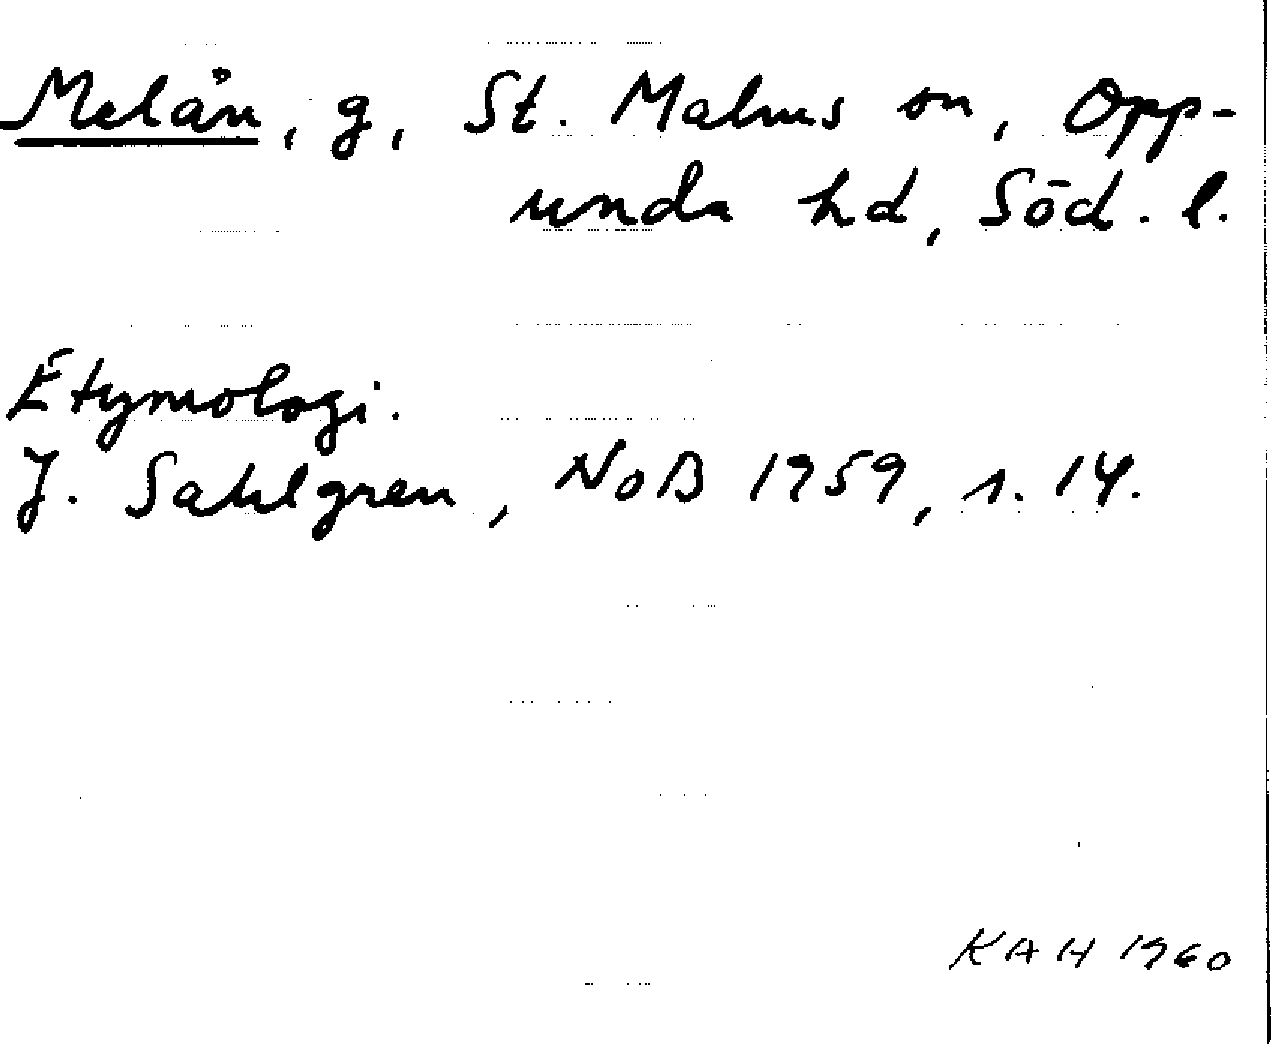 Melån, g, St. Malms sn, Opp-
unda hd, Söd. l.
Etymologi.
J. Sahlgren, NoB 1959, s. 14.
KAH 1960